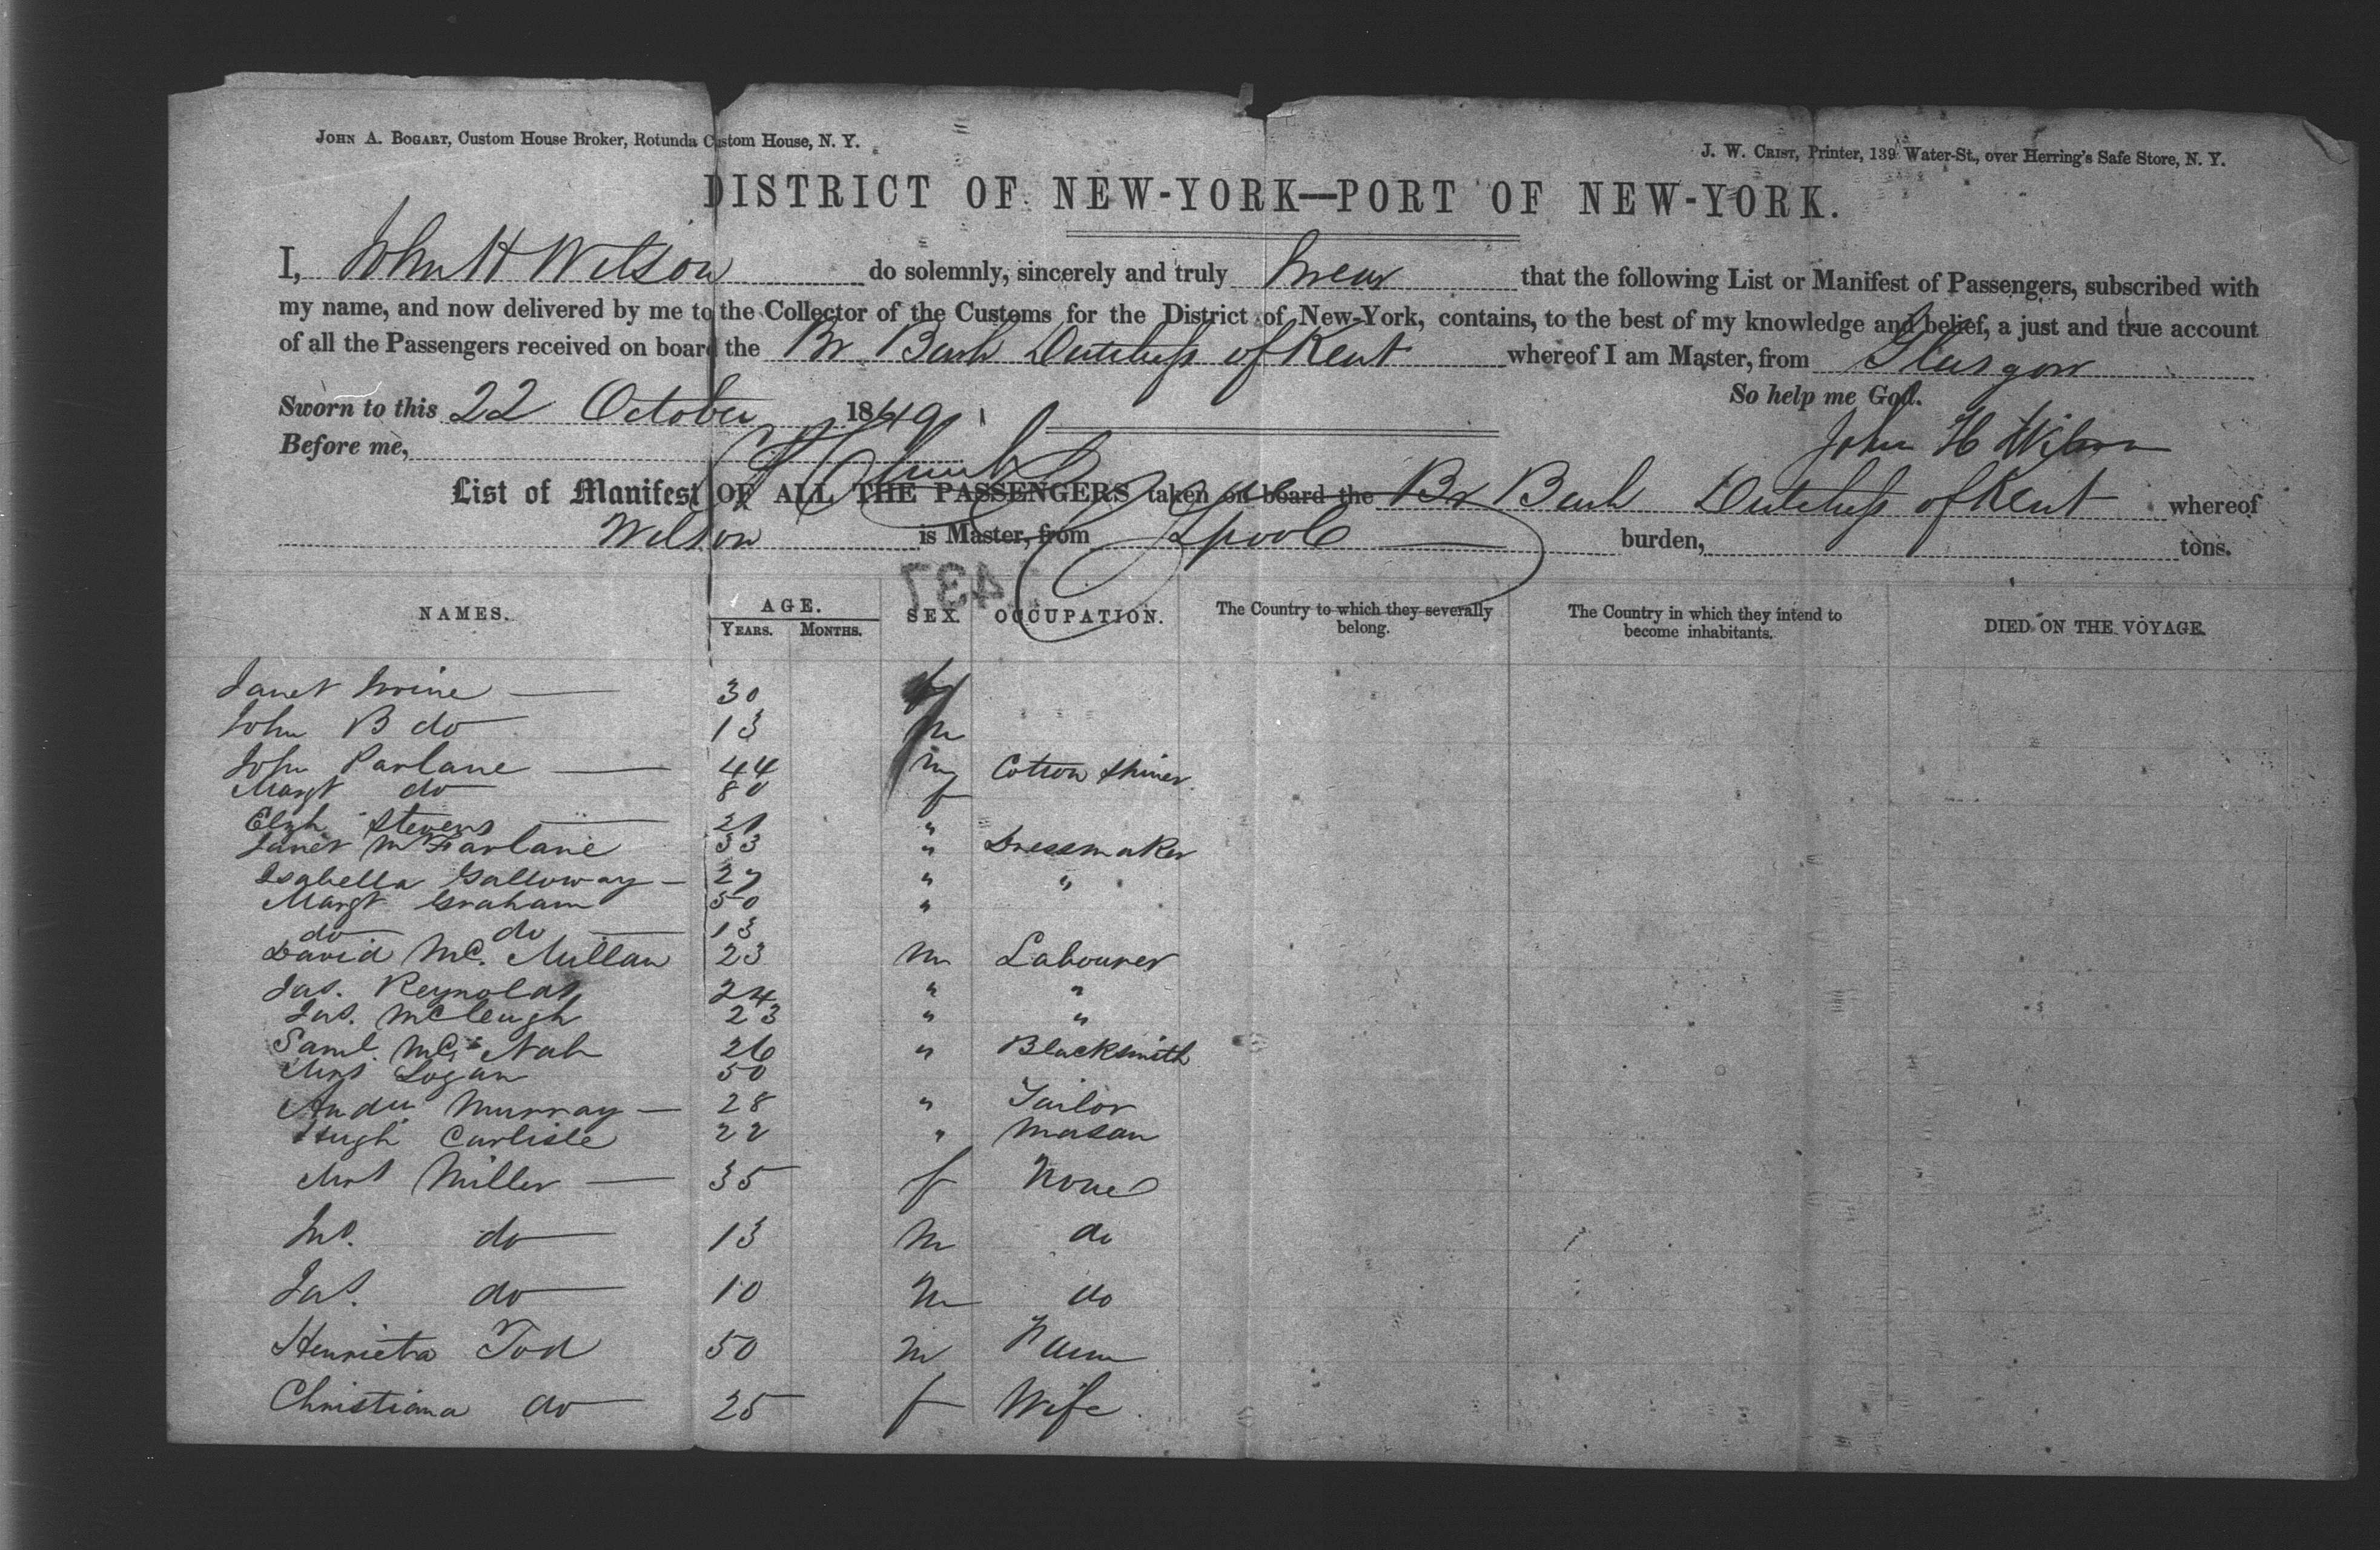 JOHN A. BOGART, Custom House Broker, Rotunda Custom House, N. Y.
J. W. CRIST, Printer, 139 Water-St., over Herring's Safe Store, N. Y.
DISTRICT OF NEW-YORK—PORT OF NEW-YORK.
I, John H Wilson do solemnly, sincerely and truly Swear that the following List or Manifest of Passengers, subscribed with
my name, and now delivered by me to the Collector of the Customs for the District of New-York, contains, to the best of my knowledge and belief, a just and true account
of all the Passengers received on board the Br Bark Dutchess of Kent whereof I am Master, from Glasgow
So help me God.
Sworn to this 22 October 1849
John H Wilson
Before me,
List of Manifest OF ALL THE PASSENGERS taken on board the Br Bark Dutchess of Kent whereof
Wilson is Master, from Lpool burden, tons.
1437
NAMES. AGE. YEARS. MONTHS. SEX. OCCUPATION. The Country to which they severally belong. The Country in which they intend to become inhabitants. DIED ON THE VOYAGE.
Janet Irvine 30 f
John B do 13 m
John Parlane 44 m Cotton Spiner
Margt do 80 f
Elizh Stevens 21 "
Janet McFarlane 33 " Dressmaker
Isabella Galloway 27 " "
Margt Graham 50 "
do do 13
David Mc. Millan 23 m Labourer
Jas. Reynolds 24 " "
Jas. McCleugh 23 " "
Saml. Mc. Nab 26 " Blacksmith
Mrs Logan 50
Andw Murray 28 " Tailor
Hugh Carlisle 22 " Mason
Mrs Miller 35 f None
Jno. do 13 m do
Jas. do 10 m do
Henrieta Tod 50 m
Christiana do 25 f Wife